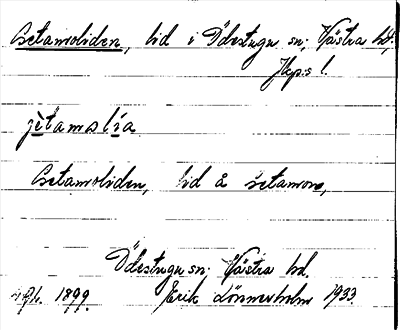 Getamoliden, lid i Ödestugu sn; Västra hd;
Jkp:s l.
jètamslía
Getamoliden, lid å Getamon,
Ödestugu sn; Västra hd.
1899. Erik Lönnerholm 1933.